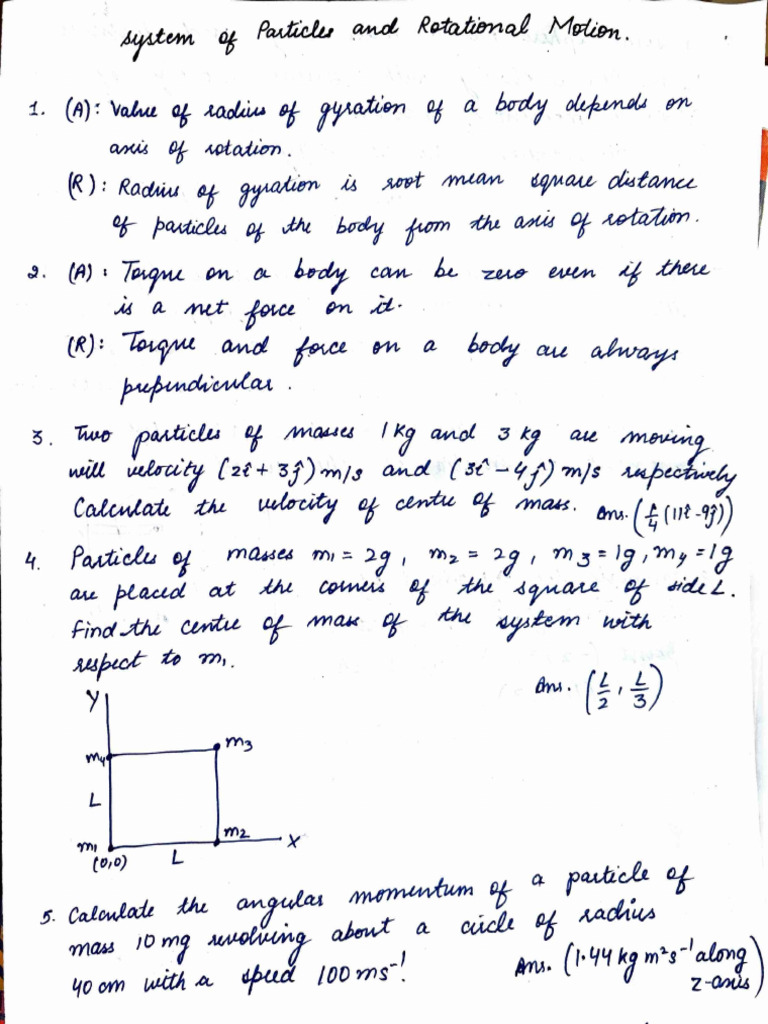 system of Particles and Rotational Motion.
1. (A): Value of radius of gyration of a body depends on
axis of rotation.
(R): Radius of gyration is root mean square distance
of particles of the body from the axis of rotation.
2. (A): Torque on a body can be zero even if there
is a net force on it.
(R): Torque and force on a body are always
prependicular.
3. Two particles of masses 1kg and 3 kg are moving
will velocity (2î + 3ĵ) m/s and (3î - 4ĵ) m/s respectively
Calculate the velocity of centre of mass. Ans. (1/4 (11î - 9ĵ))
4. Particles of masses m1 = 2g, m2 = 2g, m3 = 1g, m4 = 1g
are placed at the corners of the square of side L.
Find the centre of mass of the system with
respect to m1.
Ans. (L/2, L/3)
Y
m4 m3
L
m1 m2 X
(0,0) L
5. Calculate the angular momentum of a particle of
mass 10 mg revolving about a circle of radius
40 cm with a speed 100 ms⁻¹. Ans. (1.44 kg m²s⁻¹ along
z-axis)